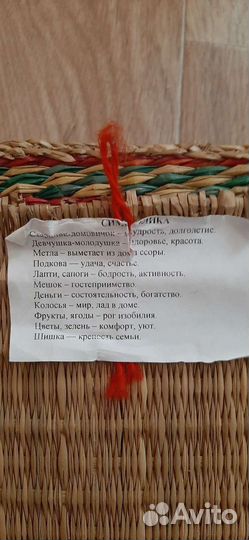 СИМВОЛИКА
домовичок – мудрость, долголетие.
Девчушка-молодушка – здоровье, красота.
Метла – выметает из дома ссоры.
Подкова – удача, счастье.
Лапти, сапоги – бодрость, активность.
Мешок – гостеприимство.
Деньги – состоятельность, богатство.
Колосья – мир, лад в доме.
Фрукты, ягоды – рог изобилия.
Цветы, зелень – комфорт, уют.
Шишка — крепость семьи.
Avito